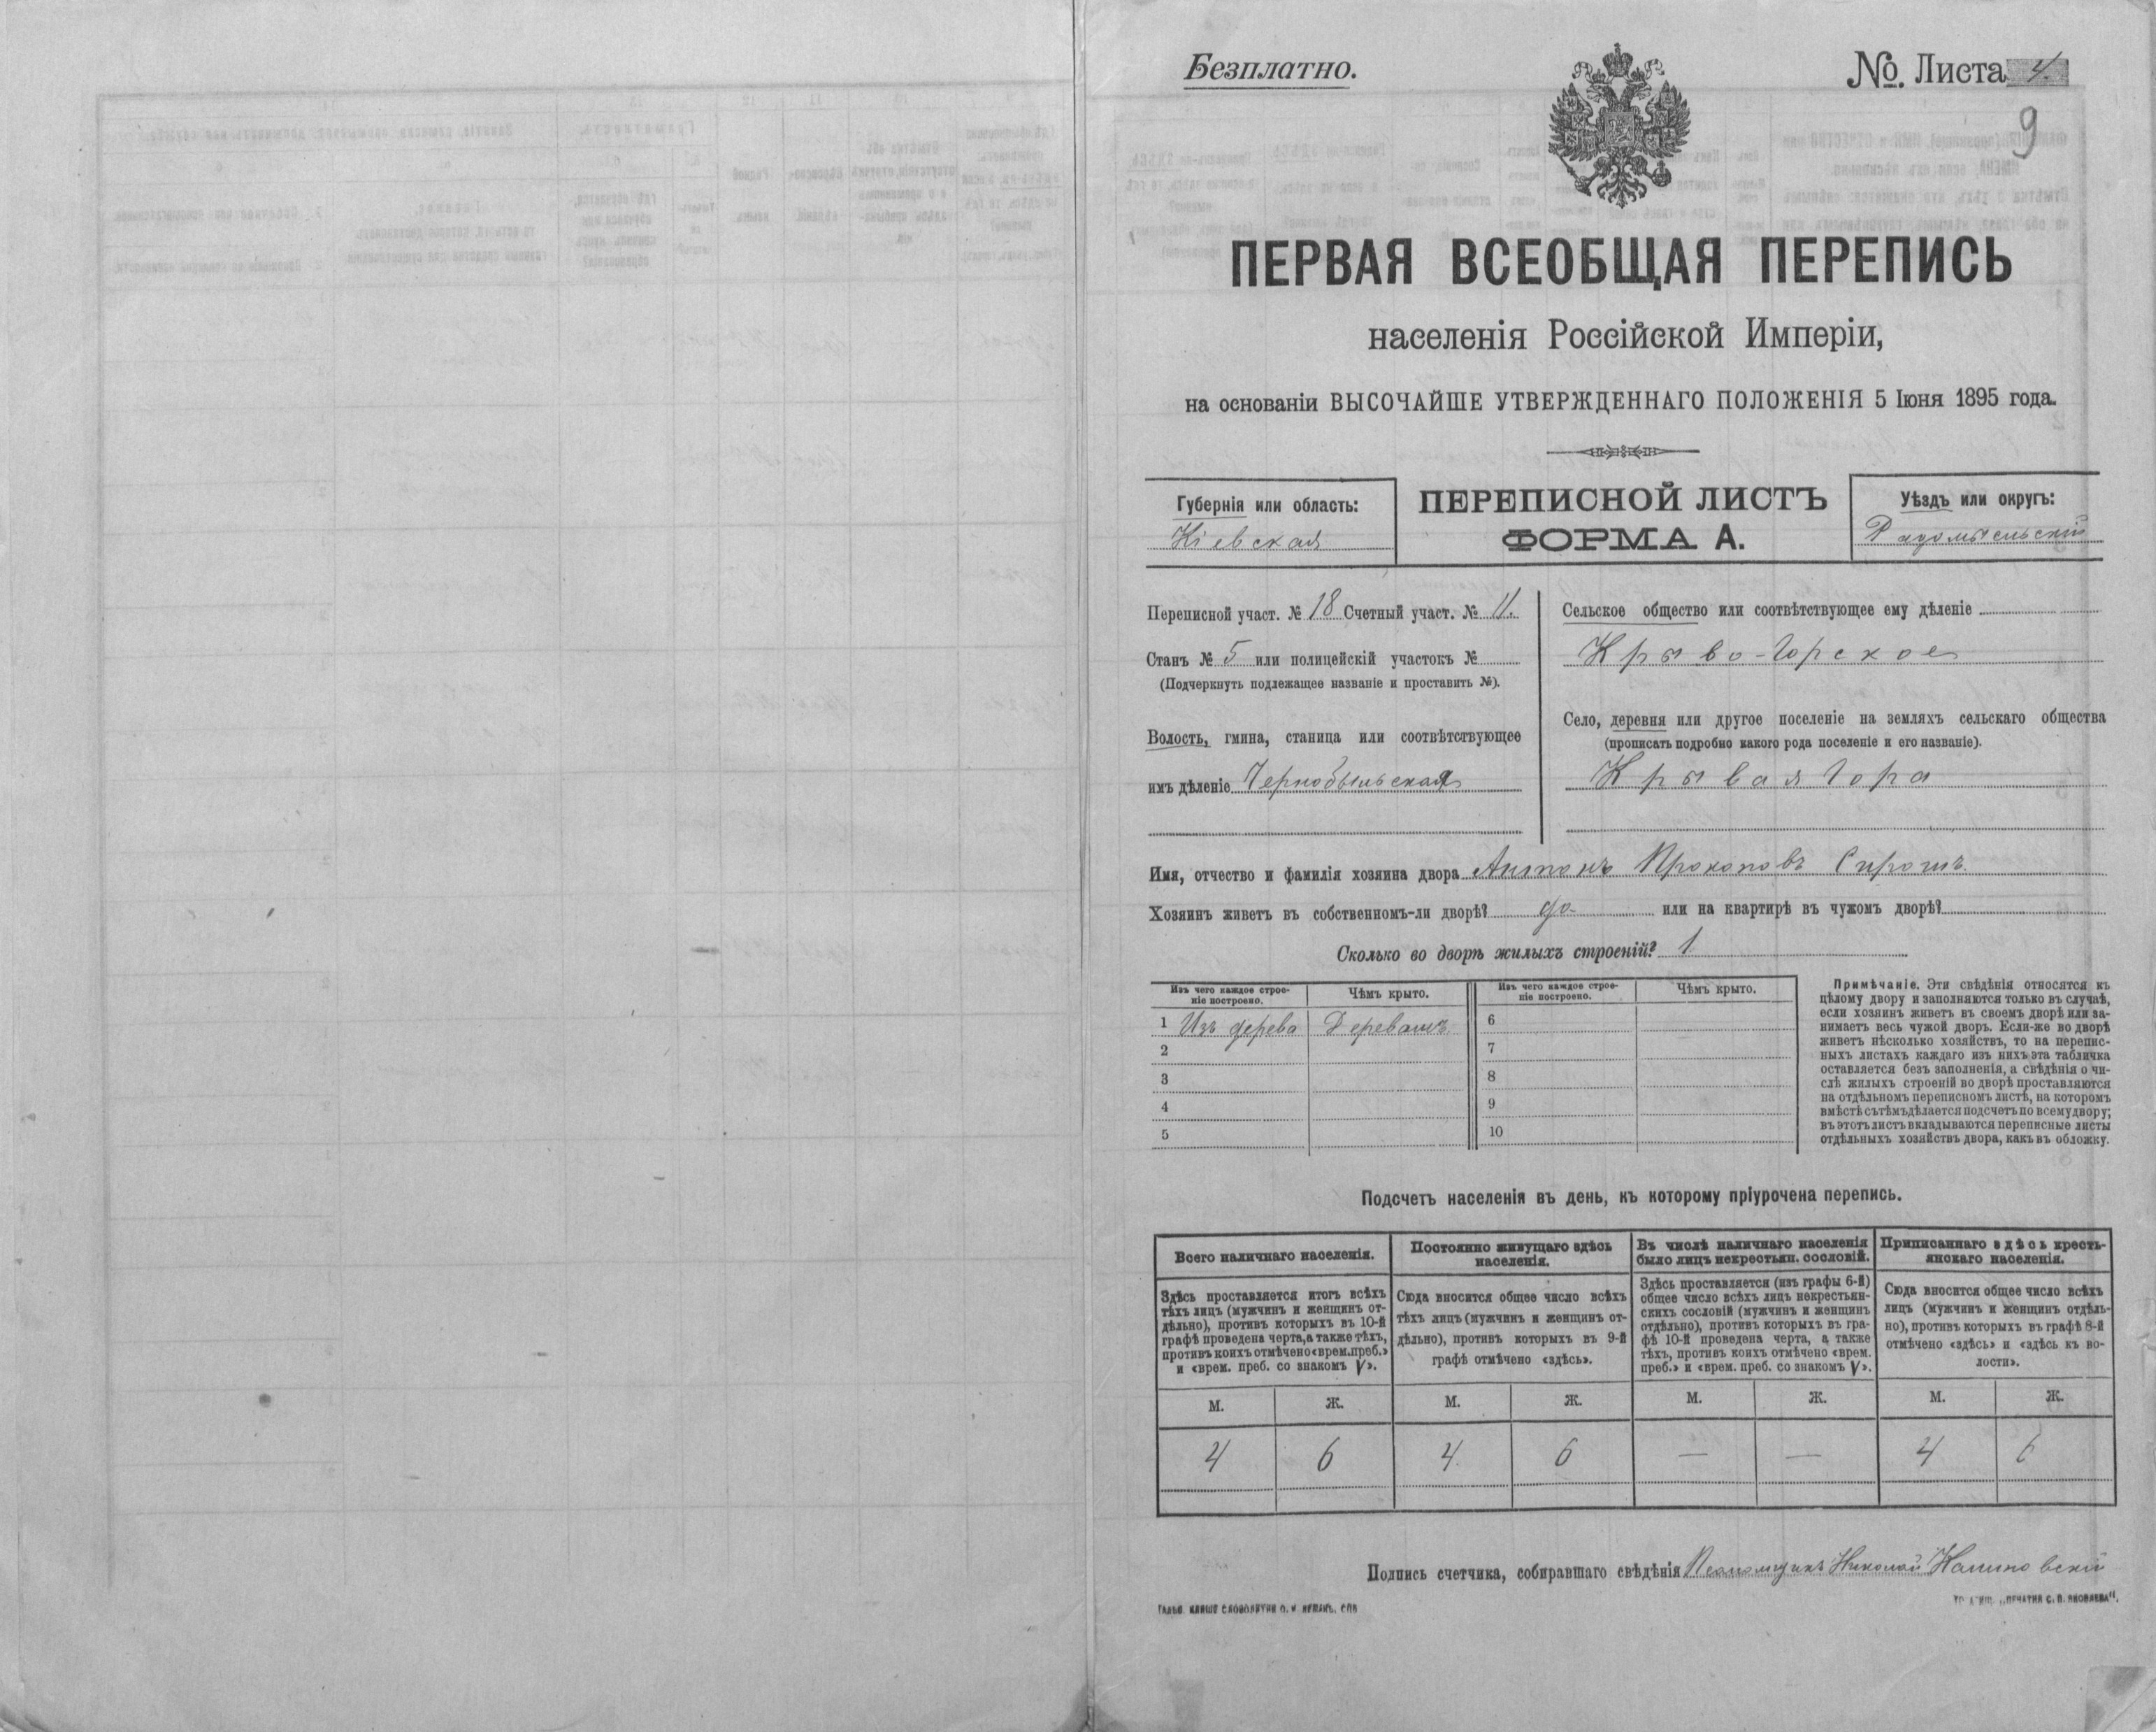 Безплатно.
№ Листа 4.
9
ПЕРВАЯ ВСЕОБЩАЯ ПЕРЕПИСЬ
населенія Россійской Имперіи,
на основаніи ВЫСОЧАЙШЕ УТВЕРЖДЕННАГО ПОЛОЖЕНІЯ 5 Іюня 1895 года.
Губернія или область:
Кіевская
ПЕРЕПИСНОЙ ЛИСТЪ
ФОРМА А.
Уѣздъ или округъ:
Радомысльскій
Переписной участ. № 18 Счетный участ. № 11.
Станъ № 5 или полицейскій участокъ №
(Подчеркнуть подлежащее названіе и проставить №).
Волость, гмина, станица или соотвѣтствующее
имъ дѣленіе Чернобыльская
Сельское общество или соотвѣтствующее ему дѣленіе
Крыво-Горское
Село, деревня или другое поселеніе на земляхъ сельскаго общества
(прописать подробно какого рода поселеніе и его названіе).
Крывая Гора
Имя, отчество и фамилія хозяина двора Антонъ Прокоповъ
Хозяинъ живетъ въ собственномъ-ли дворѣ? да или на квартирѣ въ чужомъ дворѣ?
Сколько во дворѣ жилыхъ строеній? 1
Изъ чего каждое строе-
ніе построено.
Чѣмъ крыто.
Изъ чего каждое строе-
ніе построено.
Чѣмъ крыто.
1 Изъ дерева Деревомъ
2
3
4
5
6
7
8
9
10
Примѣчаніе. Эти свѣдѣнія относятся къ
цѣлому двору и заполняются только въ случаѣ,
если хозяинъ живетъ въ своемъ дворѣ или за-
нимаетъ весь чужой дворъ. Если-же во дворѣ
живетъ нѣсколько хозяйствъ, то на перепис-
ныхъ листахъ каждаго изъ нихъ эта табличка
оставляется безъ заполненія, а свѣдѣнія о чи-
слѣ жилыхъ строеній во дворѣ проставляются
на отдѣльномъ переписномъ листѣ, на которомъ
вмѣстѣ съ тѣмъ дѣлается подсчетъ по всему двору;
въ этотъ листъ вкладываются переписные листы
отдѣльныхъ хозяйствъ двора, какъ въ обложку.
Подсчетъ населенія въ день, къ которому пріурочена перепись.
Всего наличнаго населенія.
Постоянно живущаго здѣсь
населенія.
Въ числѣ наличнаго населенія
было лицъ некрестьян. сословій.
Приписаннаго здѣсь кресть-
янскаго населенія.
Здѣсь проставляется итогъ всѣхъ
тѣхъ лицъ (мужчинъ и женщинъ от-
дѣльно), противъ которыхъ въ 10-й
графѣ проведена черта, а также тѣхъ,
противъ коихъ отмѣчено «врем. преб.»
и «врем. преб. со знакомъ V».
Сюда вносится общее число всѣхъ
тѣхъ лицъ (мужчинъ и женщинъ от-
дѣльно), противъ которыхъ въ 9-й
графѣ отмѣчено «здѣсь».
Здѣсь проставляется (изъ графы 6-й)
общее число всѣхъ лицъ некрестьян-
скихъ сословій (мужчинъ и женщинъ
отдѣльно), противъ которыхъ въ гра-
фѣ 10-й проведена черта, а также
тѣхъ, противъ коихъ отмѣчено «врем.
преб.» и «врем. преб. со знакомъ V».
Сюда вносится общее число всѣхъ
лицъ (мужчинъ и женщинъ отдѣль-
но), противъ которыхъ въ графѣ 8-й
отмѣчено «здѣсь» и «здѣсь къ во-
лости».
М. Ж. М. Ж. М. Ж. М. Ж.
4 6 4 6 — — 4 6
Подпись счетчика, собиравшаго свѣдѣнія Псаломщикъ Николай Калиновскій